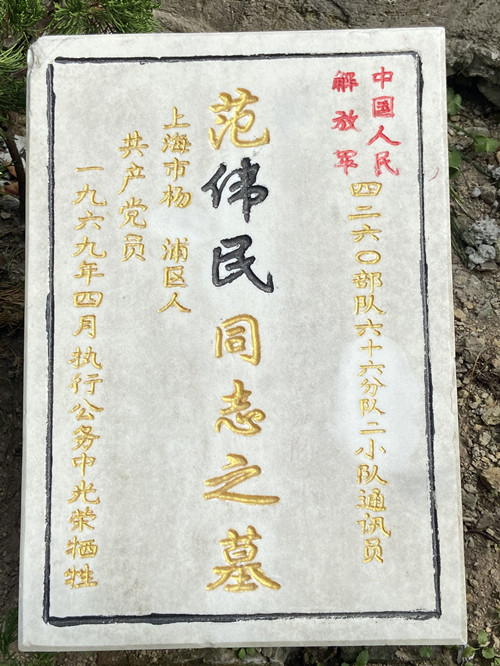 中国人民
解放军
四二六〇部队六十六分队二小队通讯员
范伟民同志之墓
上海市杨 浦区人
共产党员
一九六九年四月执行公务中光荣牺牲